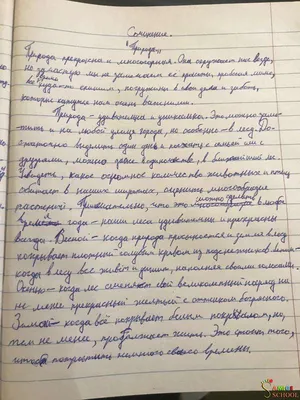 Сочинение.
"Природа"
Природа прекрасна и многогранна. Она окружает нас везде,
но зачастую мы не замечаем ее красоты, проводя мимо,
все время
куда-то спешим, погружены в свои дела и заботы,
которые кажутся нам очень важными.
Природа - удивительна и уникальна. Это можно заме-
тить и на любой улице города, но особенно - в лесу. До-
статочно выделить один день и поехать с семьей или с
друзьями, можно даже в одиночестве, в ближайший лес.
Увидеть, какое огромное количество животных и птиц
обитает в наших широтах, ощутить многообразие
растений. Примечательно, что это можно сделать в любое
время года - наши леса удивительны и прекрасны
всегда. Весной - когда природа просыпается и земля в лесу
покрывает плотным голубым ковром из подснежников. Летом -
когда в лесу все живет и дышит, наполняя своими голосами.
Осенью - когда лес сменяет свой великолепный наряд на
не менее прекрасный желтый с оттенком багряного.
Зимой - когда всё покрывает белым покрывалом, но,
тем не менее, продолжает жить. Это стоит того,
чтобы потратить немного своего времени.
SCHOOL